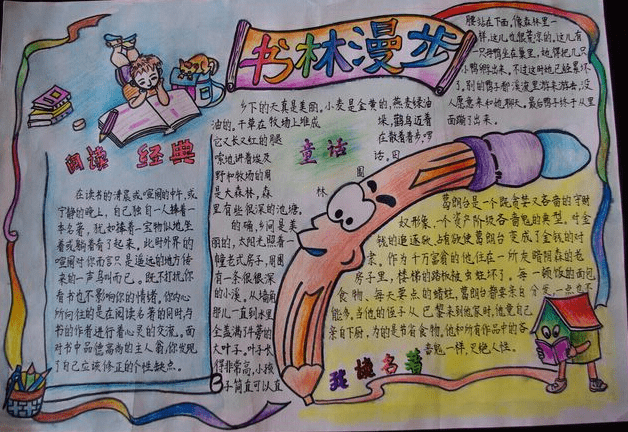 书林漫步
阅读 经典
在读书的清晨或喧闹的中午,或
宁静的晚上,自己独自一人捧着一
本名著,犹如捧着一宝物似地坐
着或躺着看了起来,此时外界的
喧闹对你而言只是遥远的地方传
来的一声鸟叫而已。既不打扰你
看书也不影响你的情绪,你内心
所向往的是在阅读名著的同时与
书的作者进行着心灵的交流。面
对书中品德高尚的主人翁,你发现
了自己应该修正的个性缺点。
童话
乡下的天真是美丽。小麦是金黄的,燕麦绿油
油的。干草在牧场上堆成
垛,鹳鸟迈着
它又长又红的腿
在散着步,啰
嗦地讲着埃及
话。田
野和牧场的周
围
是大森林,森
林
里有些很深的池塘。
的确,乡间是美
丽的,太阳光照着一
幢老式房子,周围
有一条很很深
的小溪。从墙角
那儿一直到水里
全盖满了牛蒡的
大叶子。叶子长
得非常高,小孩
子简直可以直
腰站在下面,像森林里一
样,这儿也很荒凉的。这儿有
一只母鸭坐在巢里,她得把几只
小鸭孵出来,不过这时她已经累坏
了。别的鸭子都溪流里游来游去,没
人愿意来和她聊天。最后鸭子终于从里
面蹦了出来。
葛朗台是一个既贪婪又吝啬的守财
奴形象,一个资产阶级吝啬鬼的典型。对金
钱的追逐欲,占有欲使葛朗台变成了金钱的对
家,作为十万富翁的他,住在一所灰暗阴森的老
房子里,楼梯的踏板被虫蛀坏了。每一顿饭的面包
食物,每天要点的蜡烛,葛朗台都要亲自分发一点也不
能多,当他的侄子从巴黎来到他家时,他竟自己
亲自下厨,为的是节省食物。他和所有作品中的吝
啬鬼一样,灭绝人性。
我读名著